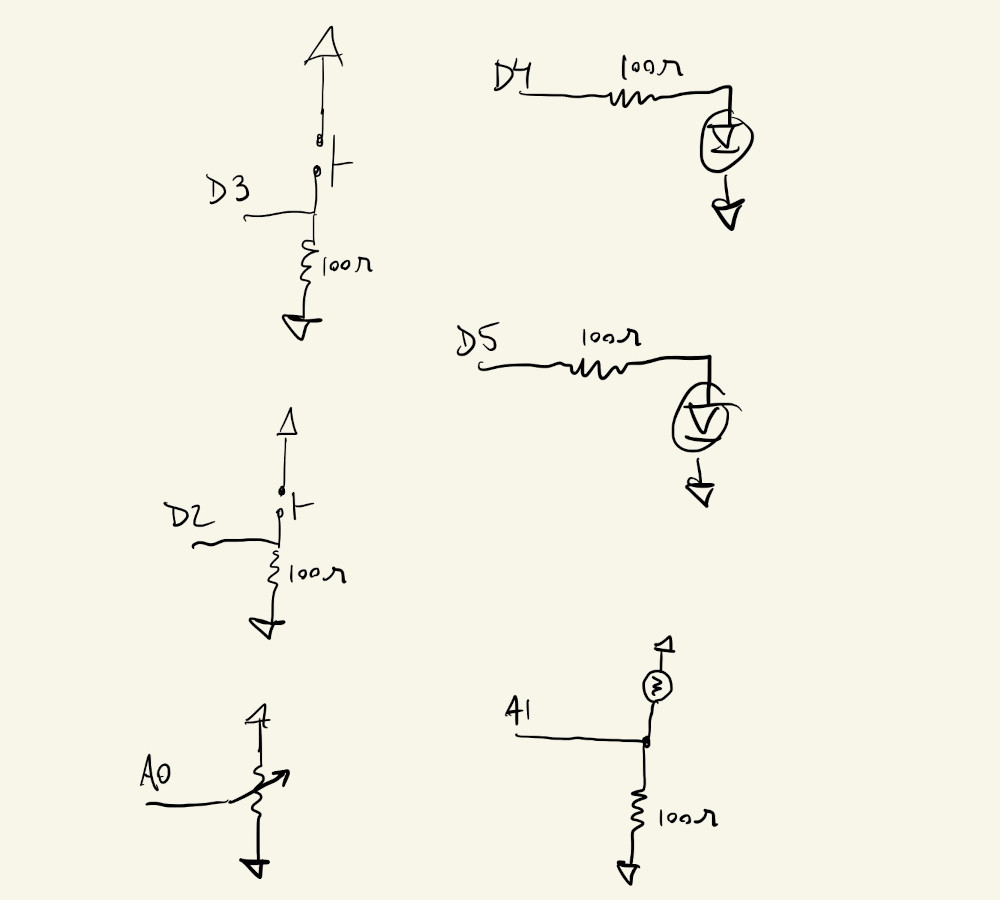 D4
100Ω
D3
100Ω
D5
100Ω
D2
100Ω
A1
A0
100Ω